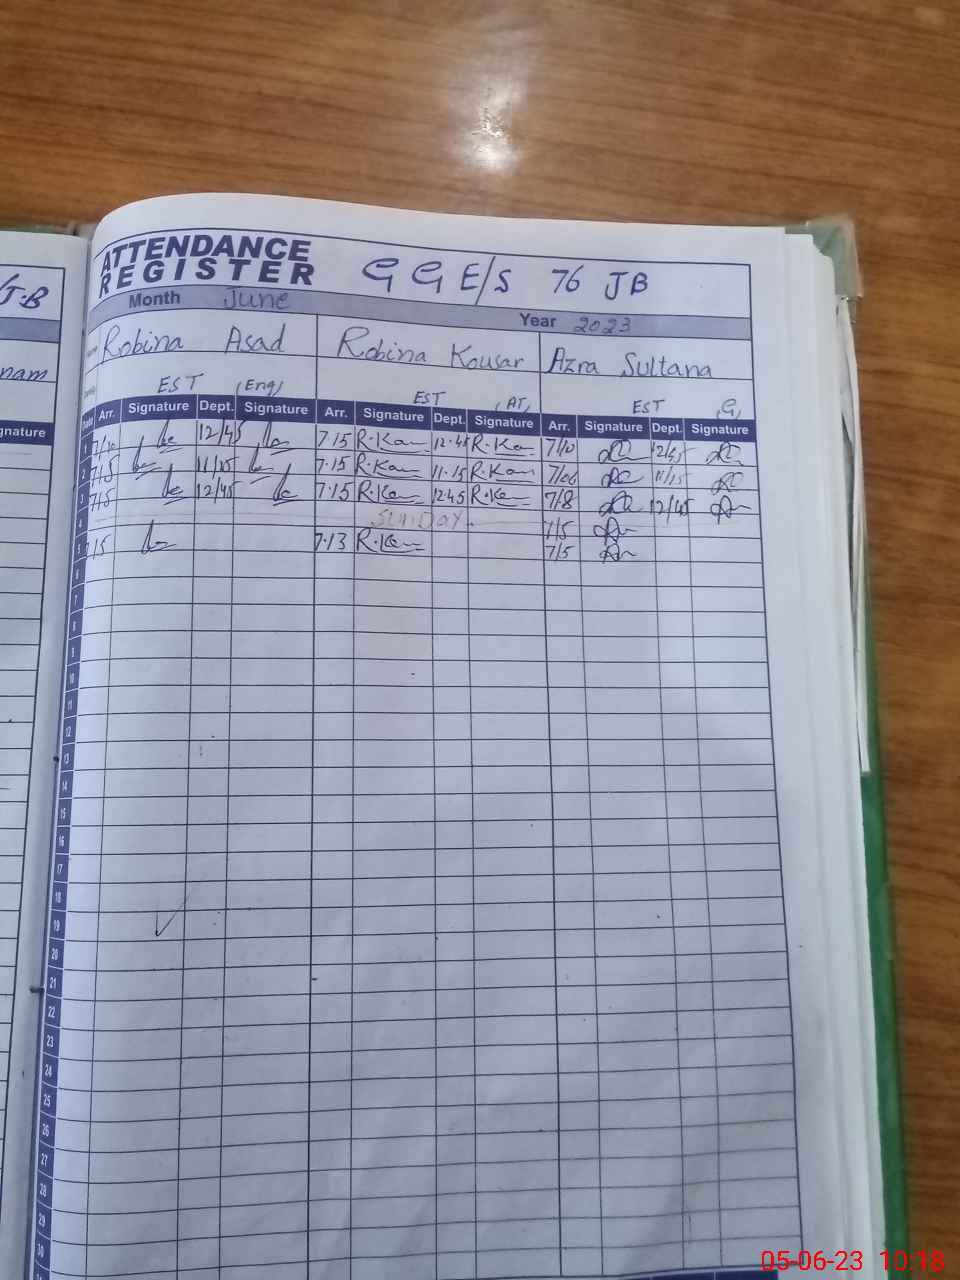 /J-B
nam
gnature
ATTENDANCE
REGISTER
G G E/S 76 JB
Month June
Year 2023
Robina Asad Robina Kousar Azra Sultana
EST (Eng) EST (AT) EST (G)
Date Arr. Signature Dept. Signature Arr. Signature Dept. Signature Arr. Signature Dept. Signature
1 7/10 12/45 7.15 R.Kau 12.45 R.Kau 7/10 12/45
2 7/15 11/15 7.15 R.Kau 11.15 R.Kau 7/06 11/15
3 7/15 12/45 7.15 R.Kau 12.45 R.Kau 7/8 12/45
4 SUNDAY 7/5
5 7/15 7.13 R.Kau 7/5
6
7
8
9
10
11
12
13
14
15
16
17
18
19
20
21
22
23
24
25
26
27
28
29
30
05-06-23 10:18